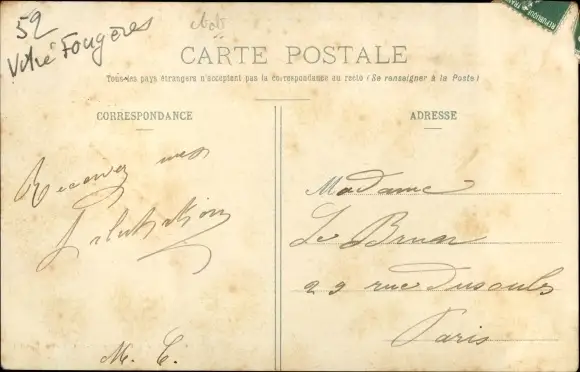 52
Vitré Fougères
CARTE POSTALE
Tous les pays étrangers n'acceptent pas la correspondance au recto (Se renseigner à la Poste)
CORRESPONDANCE
Recevez mes
Salutations
M. C.
ADRESSE
Madame
Le Brun
29 rue Dusoulls
Paris